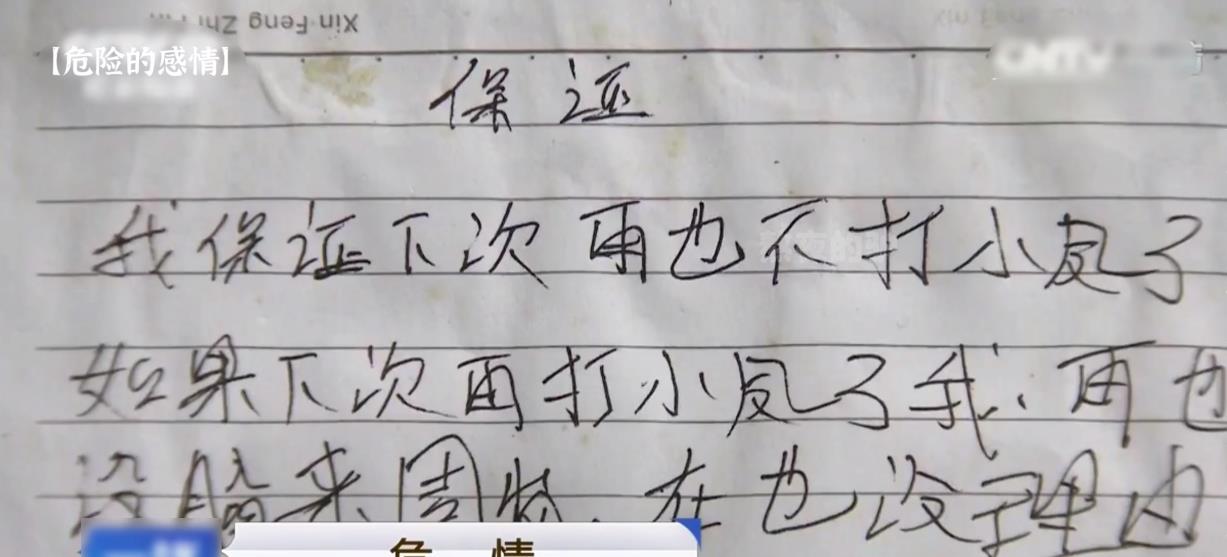 Xin Feng Zhi Pin
【危险的感情】
CNTV
保证
我保证下次再也不打小凤了
如果下次再打小凤了我、再也
没脸来周
在也没理由
危 情